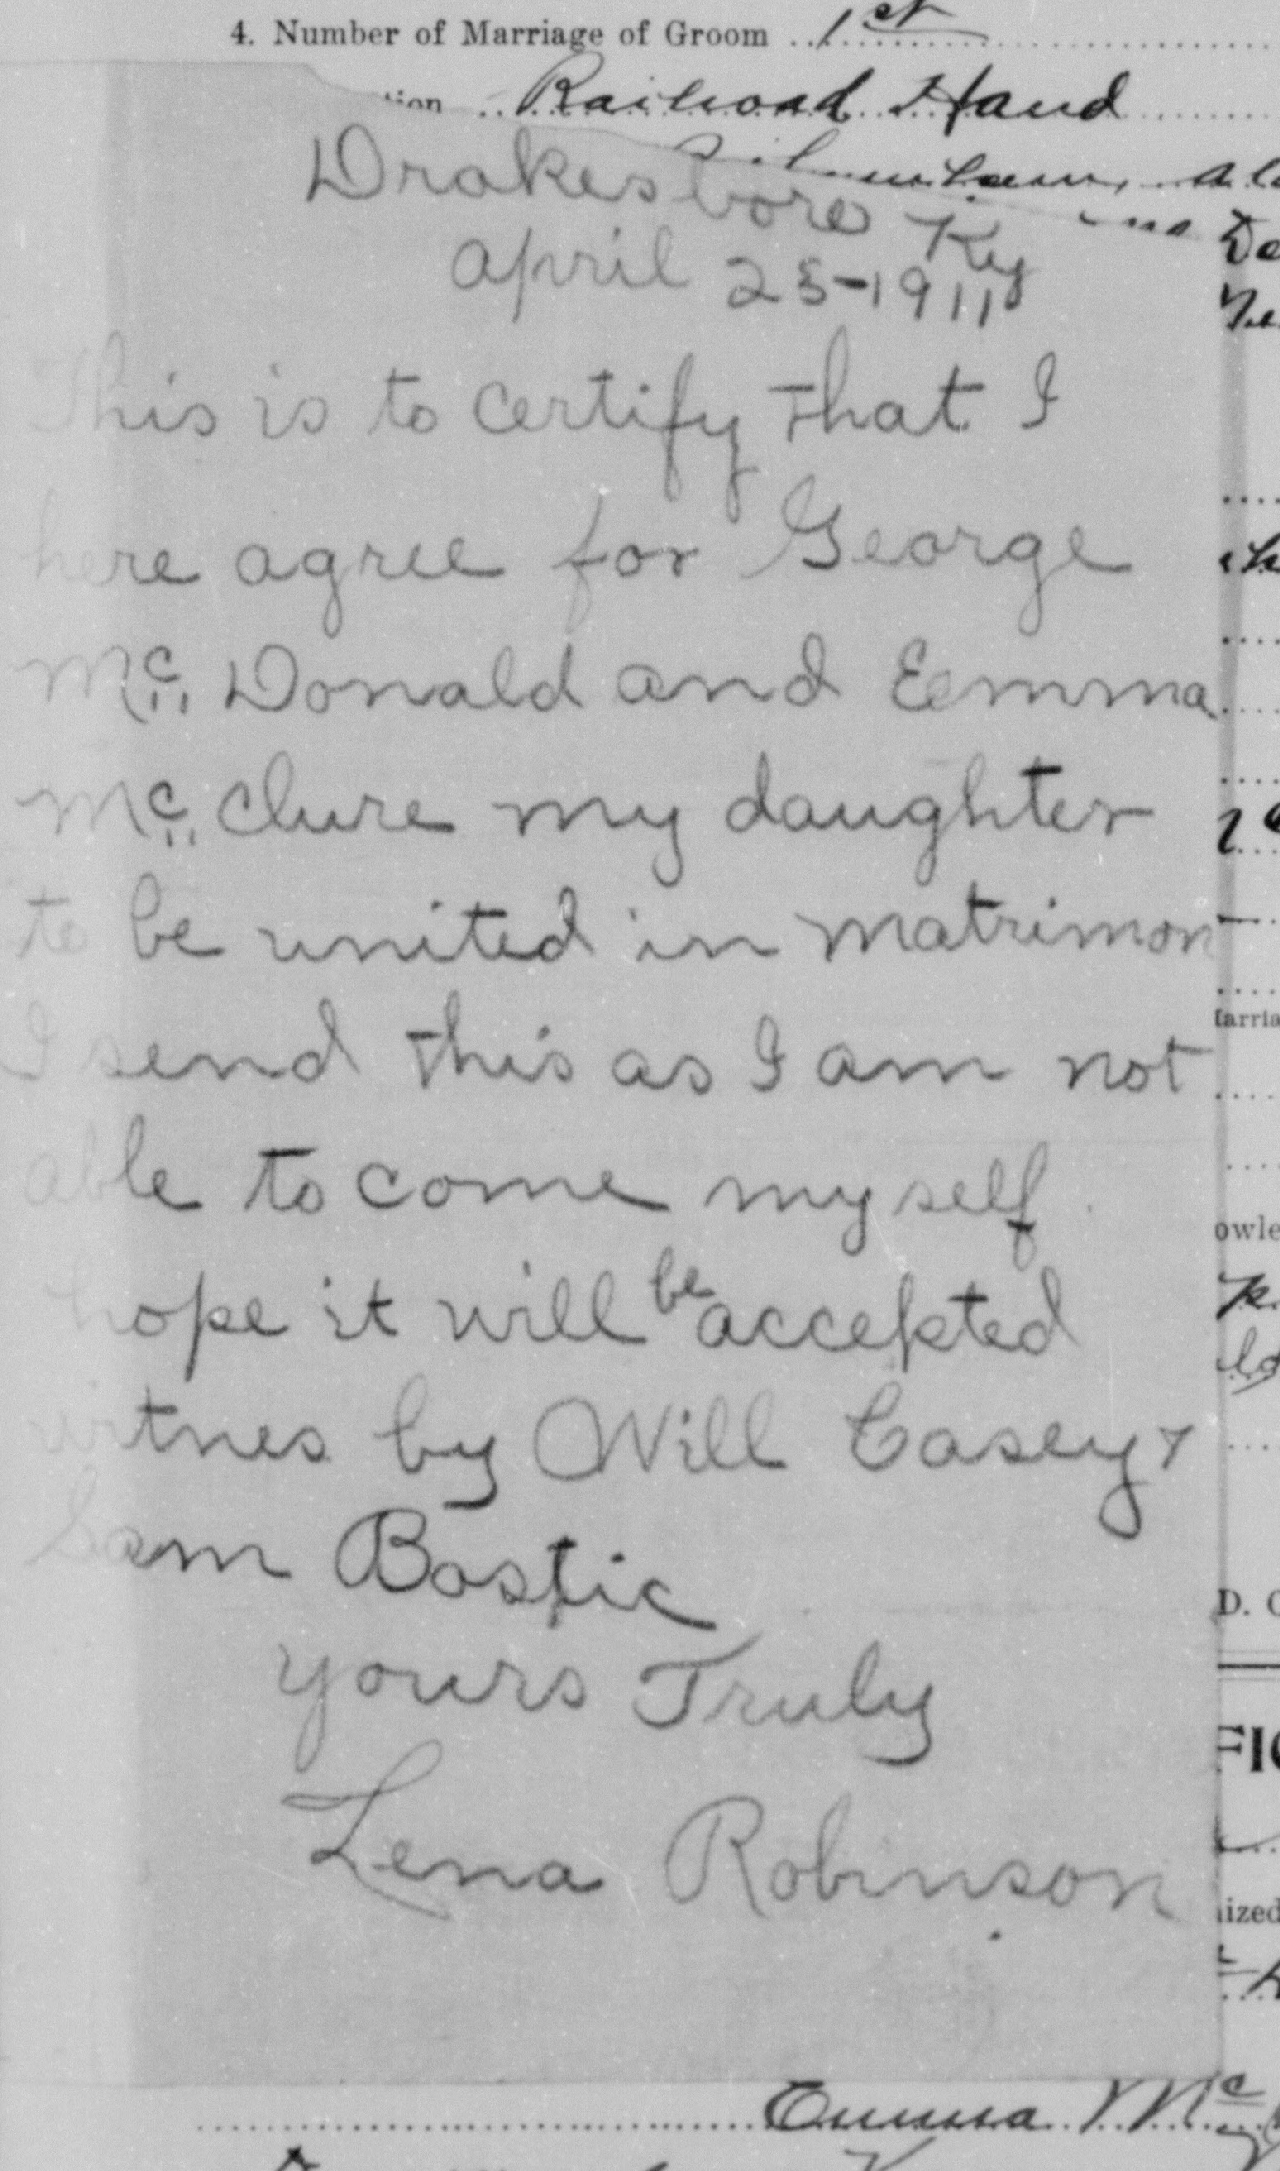 4. Number of Marriage of Groom 1st
tion Railroad Hand
Drakesboro Ky
April 25-1911
This is to certify that I
here agree for George
Mc Donald and Eemma
Mc Clure my daughter
to be united in matrimon
I send this as I am not
able to come myself
hope it will be accepted
witnes by Will Casey &
Sam Bostic
Yours Truly
Lena Robinson
arria
owle
D. C
FIC
ized
Emma Mc